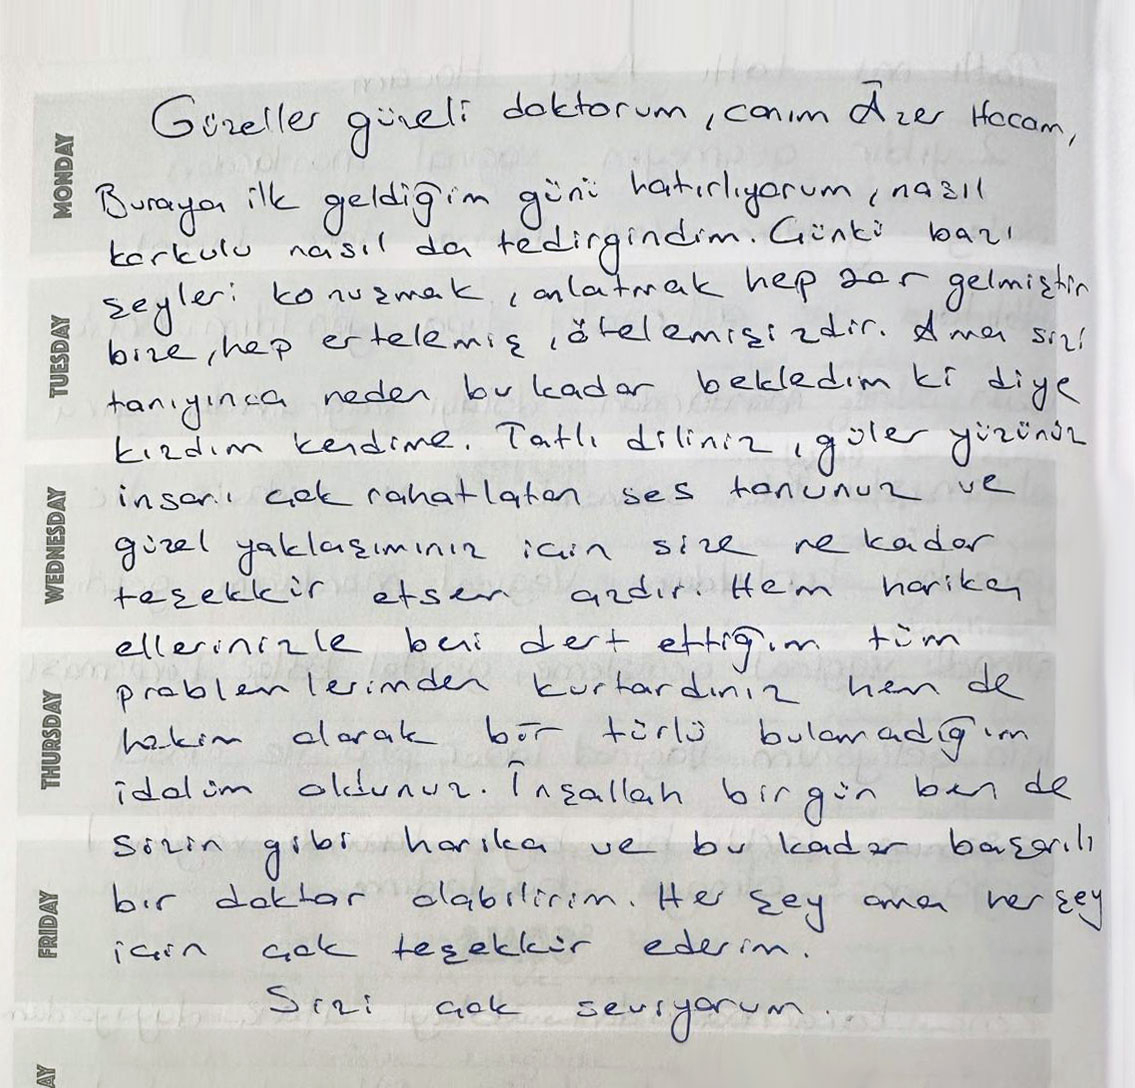 MONDAY
Güzeller güzeli doktorum, canım Âzer Hocam,
Buraya ilk geldiğim günü hatırlıyorum, nasıl
korkulu nasıl da tedirgindim. Çünkü bazı
şeyleri konuşmak, anlatmak hep zor gelmiştir
TUESDAY
bize, hep ertelemiş, ötelemişizdir. Ama sizi
tanıyınca neden bu kadar bekledim ki diye
kızdım kendime. Tatlı diliniz, güler yüzünüz
WEDNESDAY
insanı çok rahatlatan ses tonunuz ve
güzel yaklaşımınız için size ne kadar
teşekkür etsem azdır. Hem harika
ellerinizle beni dert ettiğim tüm
THURSDAY
problemlerimden kurtardınız hem de
hekim olarak bir türlü bulamadığım
idolüm oldunuz. İnşallah birgün ben de
sizin gibi harika ve bu kadar başarılı
FRIDAY
bir doktor olabilirim. Her şey ama her şey
için çok teşekkür ederim.
Sizi çok seviyorum.
AY